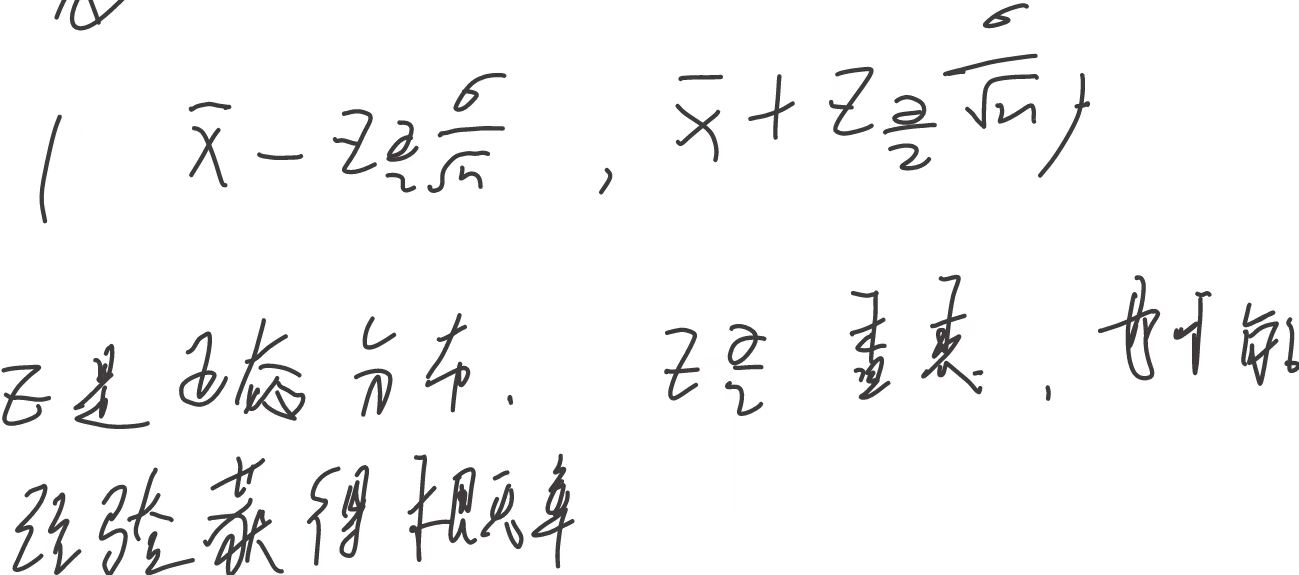 ( x̄ - Z α/2 σ/√n , x̄ + Z α/2 σ/√n )
Z是正态分布. Z α/2 查表,
经验获得概率